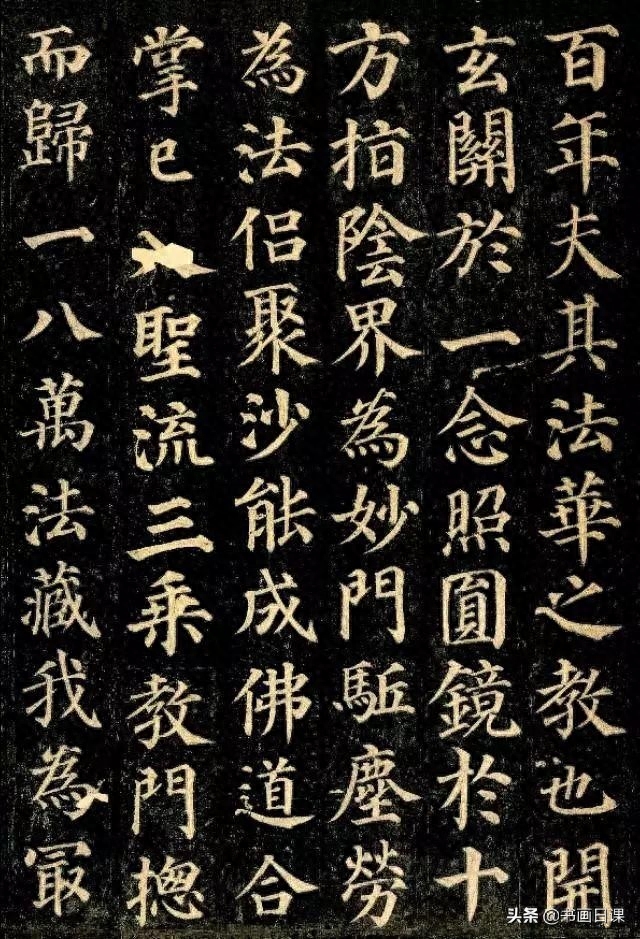 百年夫其法華之教也開
玄關於一念照圓鏡於十
方指陰界為妙門駈塵勞
為法侶聚沙能成佛道合
掌已入聖流三乘教門揔
而歸一八萬法藏我為冣
头条 @书画日课